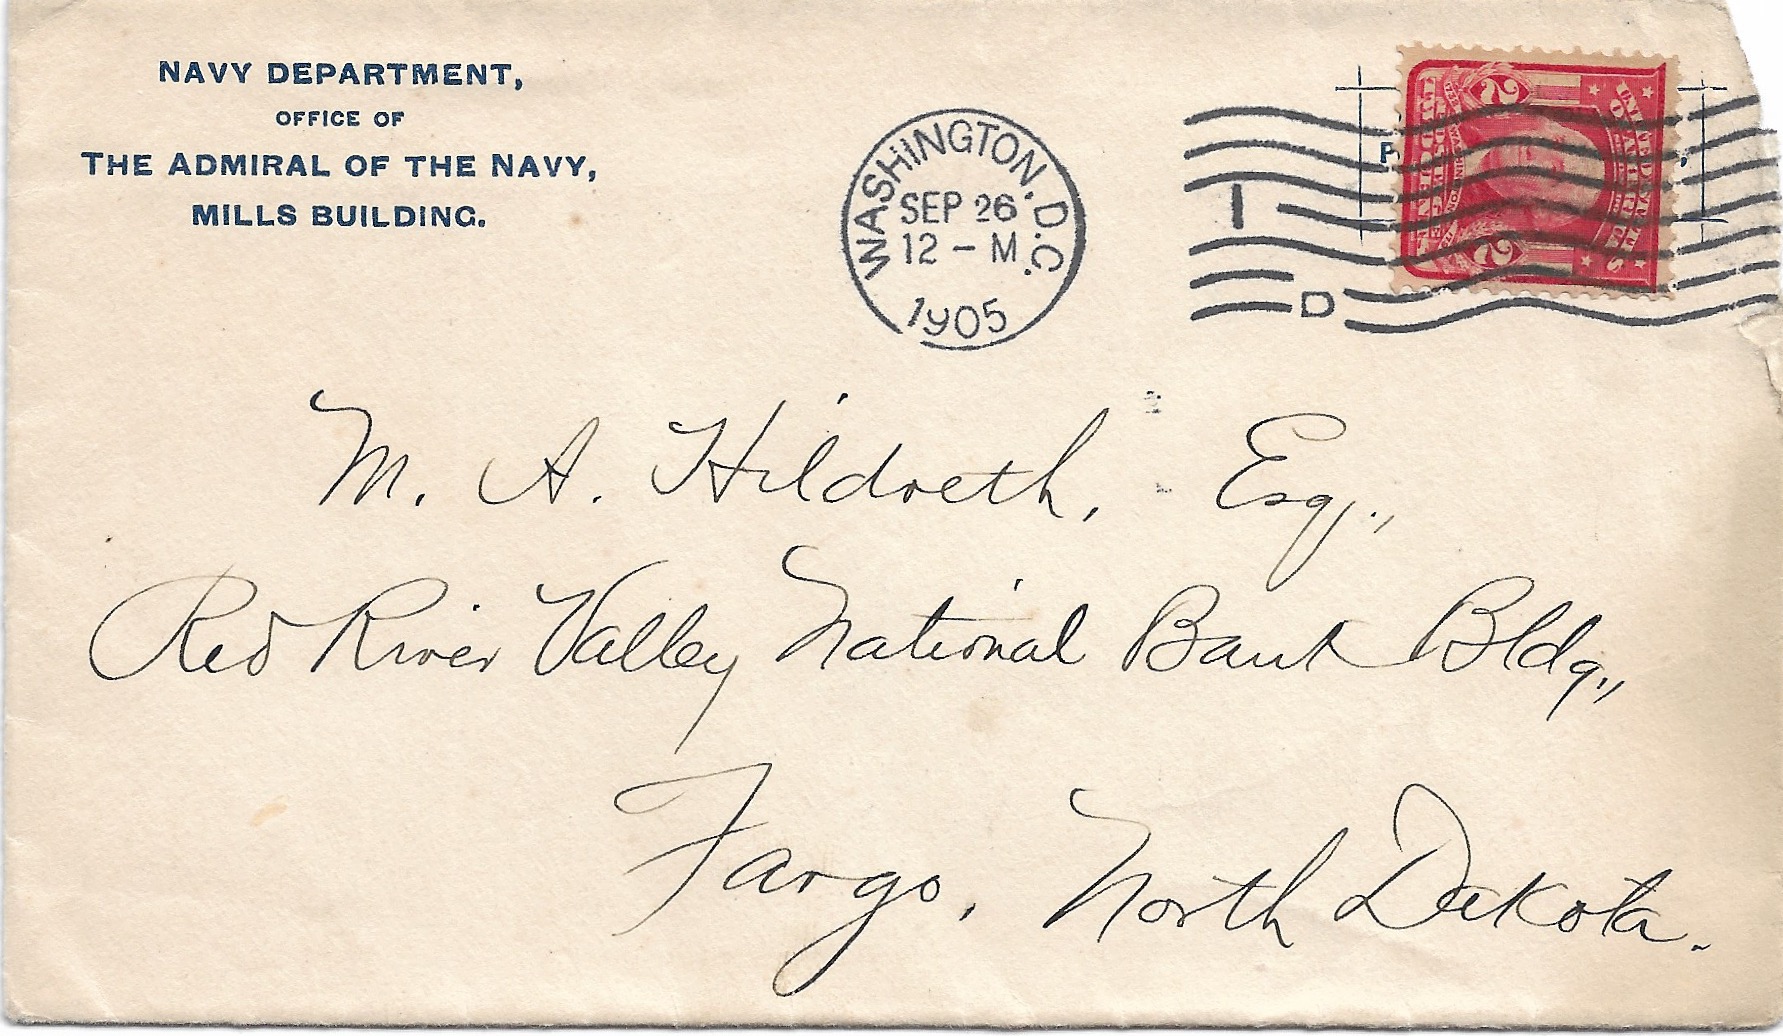 NAVY DEPARTMENT,
OFFICE OF
THE ADMIRAL OF THE NAVY,
MILLS BUILDING.
WASHINGTON, D.C.
SEP 26
12 – M
1905
1
D
2 2
M. A. Hildreth, Esq.,
Red River Valley National Bank Bldg.,
Fargo, North Dakota.